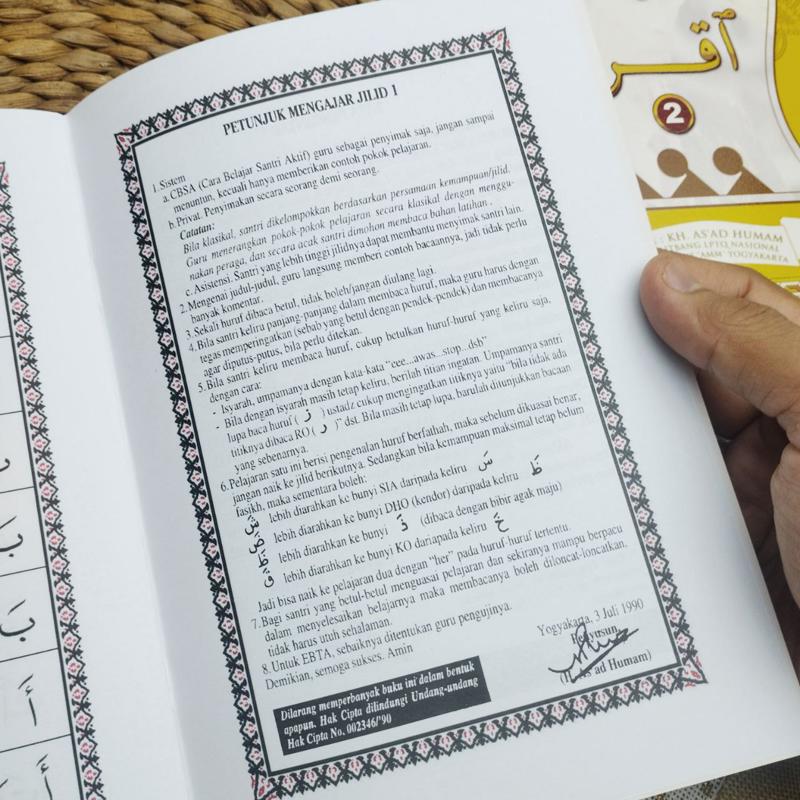 PETUNJUK MENGAJAR JILID 1
1. Sistem
a. CBSA (Cara Belajar Santri Aktif) guru sebagai penyimak saja, jangan sampai
menuntun, kecuali hanya memberikan contoh pokok pelajaran.
b. Privat. Penyimakan secara seorang demi seorang.
Catatan:
Bila klasikal, santri dikelompokkan berdasarkan persamaan kemampuan/jilid.
Guru menerangkan pokok-pokok pelajaran secara klasikal dengan menggu-
nakan peraga, dan secara acak santri dimohon membaca bahan latihan.
c. Asistensi. Santri yang lebih tinggi jilidnya dapat membantu menyimak santri lain.
2. Mengenai judul-judul, guru langsung memberi contoh bacaannya, jadi tidak perlu
banyak komentar.
3. Sekali huruf dibaca betul, tidak boleh/jangan diulang lagi.
4. Bila santri keliru panjang-panjang dalam membaca huruf, maka guru harus dengan
tegas memperingatkan (sebab yang betul dengan pendek-pendek) dan membacanya
agar diputus-putus, bila perlu ditekan.
5. Bila santri keliru membaca huruf, cukup betulkan huruf-huruf yang keliru saja,
dengan cara:
- Isyarah, umpamanya dengan kata-kata "eee...awas...stop...dsb"
- Bila dengan isyarah masih tetap keliru, berilah titian ingatan. Umpamanya santri
lupa baca huruf ( زَ ) ustadz cukup mengingatkan titiknya yaitu "bila tidak ada
titiknya dibaca RO ( رَ )" dst. Bila masih tetap lupa, barulah ditunjukkan bacaan
yang sebenarnya.
6. Pelajaran satu ini berisi pengenalan huruf berfathah, maka sebelum dikuasai benar,
jangan naik ke jilid berikutnya. Sedangkan bila kemampuan maksimal tetap belum
fasikh, maka sementara boleh:
شَ lebih diarahkan ke bunyi SIA daripada keliru سَ
ضَ lebih diarahkan ke bunyi DHO (kendor) daripada keliru ظَ
lebih diarahkan ke bunyi (dibaca dengan bibir agak maju)
قَ lebih diarahkan ke bunyi KO dariapada keliru خَ
Jadi bisa naik ke pelajaran dua dengan "her" pada huruf-huruf tertentu.
7. Bagi santri yang betul-betul menguasai pelajaran dan sekiranya mampu berpacu
dalam menyelesaikan belajarnya maka membacanya boleh diloncat-loncatkan,
tidak harus utuh sehalaman.
8. Untuk EBTA, sebaiknya ditentukan guru pengujinya.
Demikian, semoga sukses. Amin
Yogyakarta, 3 Juli 1990
Penyusun
As'ad Humam)
Dilarang memperbanyak buku ini dalam bentuk
apapun. Hak Cipta dilindungi Undang-undang
Hak Cipta No. 002346/'90
بَ
بَ
أَ
أَ
اقر
2
KH. AS'AD HUMAM
LITBANG LPTQ NASIONAL
"AMM" YOGYAKARTA